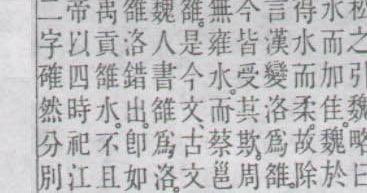 松之引魏略曰
水而加佳。魏於
得水而柔。故除
言漢變洛爲雒。
今皆受其欺。周
無雍水。而蔡邕
雒。是今文。古文
魏人書雒爲洛。
雒洛錯出。卽如
禹貢雒水。不且
帝以四時祀江
二字確然分別